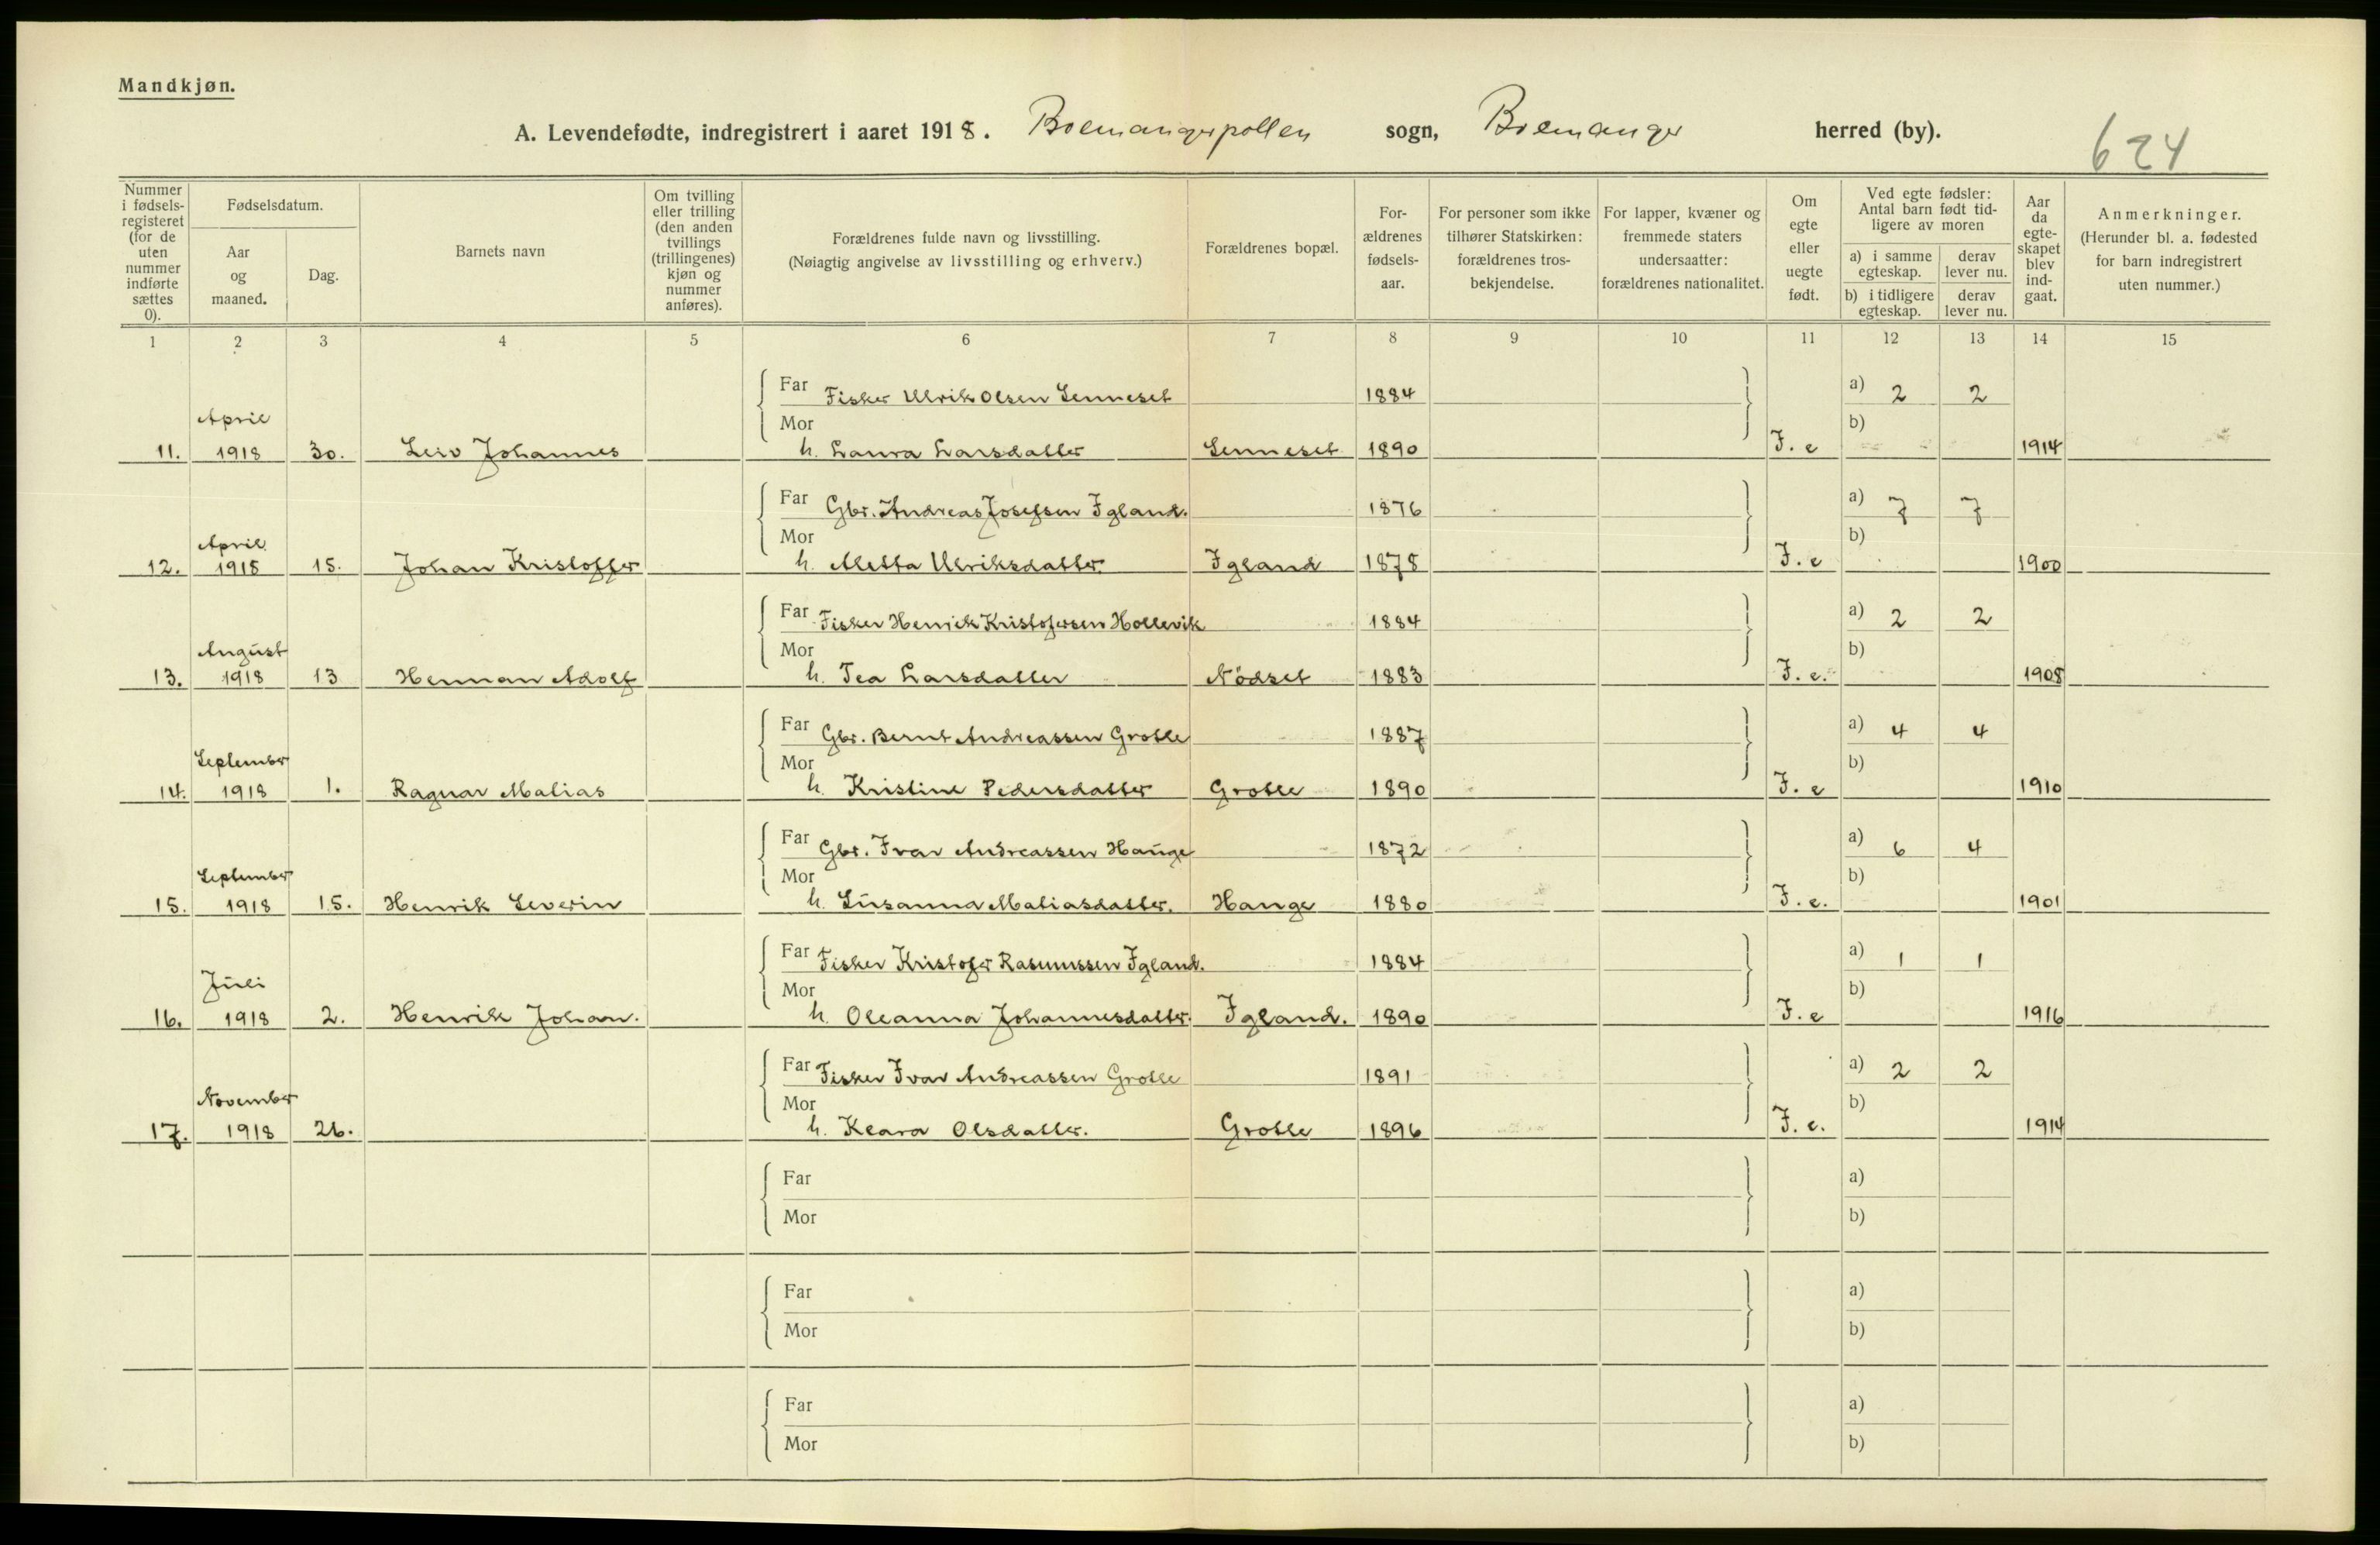 Mandkjøn.
A. Levendefødte, indregistrert i aaret 1918. Bremangerpollen sogn, Bremanger herred (by).
624
Nummer i fødsels-registeret (for de uten nummer indførte sættes 0).
Fødselsdatum.
Aar og maaned.
Dag.
Barnets navn
Om tvilling eller trilling (den anden tvillings (trillingenes) kjøn og nummer anføres).
Forældrenes fulde navn og livsstilling.
(Nøiagtig angivelse av livsstilling og erhverv.)
Forældrenes bopæl.
For-ældrenes fødsels-aar.
For personer som ikke tilhører Statskirken: forældrenes tros-bekjendelse.
For lapper, kvæner og fremmede staters undersaatter: forældrenes nationalitet.
Om egte eller uegte født.
Ved egte fødsler: Antal barn født tid-ligere av moren
a) i samme egteskap.
derav lever nu.
b) i tidligere egteskap.
derav lever nu.
Aar da egte-skapet blev ind-gaat.
Anmerkninger.
(Herunder bl. a. fødested for barn indregistrert uten nummer.)
1 2 3 4 5 6 7 8 9 10 11 12 13 14 15
Far Fisker Ulrik Olsen Senneset 1884 a) 2 2
April
Mor b)
11. 1918 30. Leiv Johannes h. Laura Larsdatter Senneset 1890 F. e 1914
Far Gbr. Andreas Josefsen Igland. 1876 a) 7 7
April
Mor b)
12. 1918 15. Johan Kristoffer h. Metta Ulriksdatter Igland 1878 F. e 1900
Far Fisker Henrik Kristofersen Hollevik 1884 a) 2 2
August
Mor b)
13. 1918 13 Herman Adolf h. Tea Larsdatter Nödset 1883 F. e. 1908
Far Gbr. Bernt Andreassen Grotle 1887 a) 4 4
September
Mor b)
14. 1918 1. Ragnar Matias h. Kristine Pedersdatter Grotle 1890 F. e 1910
Far Gbr. Ivar Andreassen Hauge 1872 a) 6 4
September
Mor b)
15. 1918 15. Henrik Severin h. Susanna Matiasdatter. Hauge 1880 F. e. 1901
Far Fisker Kristofer Rasmussen Igland. 1884 a) 1 1
Juli
Mor b)
16. 1918 2. Henrik Johan. h. Oleanna Johannesdatter. Igland. 1890 F. e 1916
Far Fisker Ivar Andreassen Grotle 1891 a) 2 2
November
Mor b)
17. 1918 26. h. Klara Olsdatter. Grotle 1896 F. e. 1914
Far a)
Mor b)
Far a)
Mor b)
Far a)
Mor b)